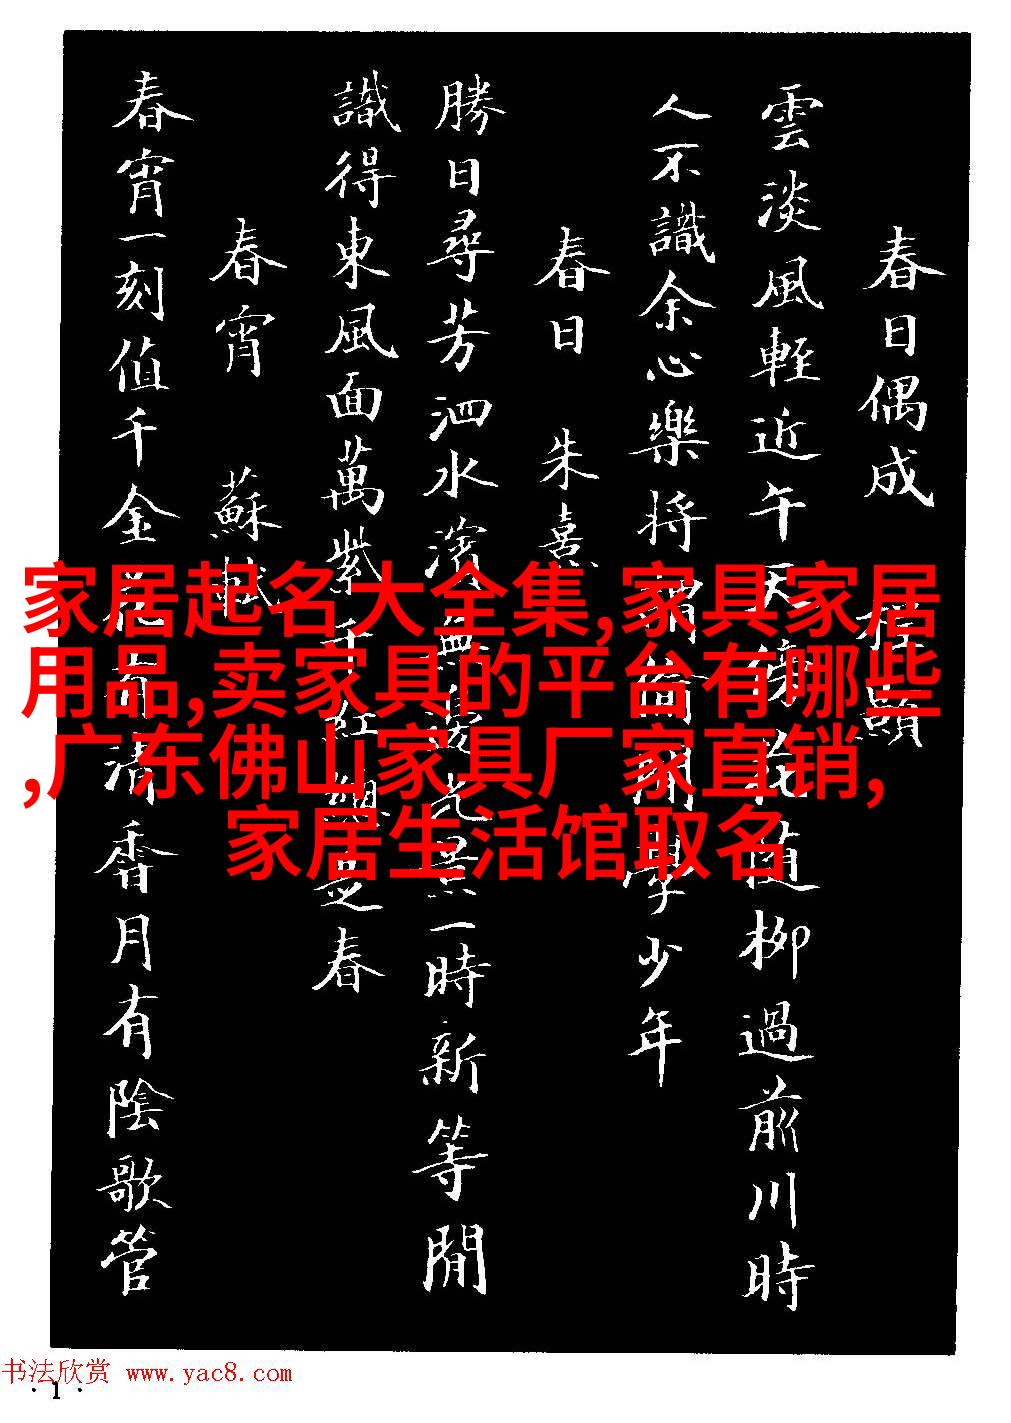 春日偶成 程顥
雲淡風輕近午天傍花随柳過前川時
人不識余心樂將謂偷閒學少年
春日 朱熹
勝日尋芳泗水濱無邊光景一時新等閒
識得東風面萬紫千紅總是春
春宵 蘇軾
春宵一刻值千金花有清香月有陰歌管
家居起名大全集,家具家居
用品,卖家具的平台有哪些
,广东佛山家具厂家直销,
家居生活馆取名
书法欣赏 www.yac8.com
·1·